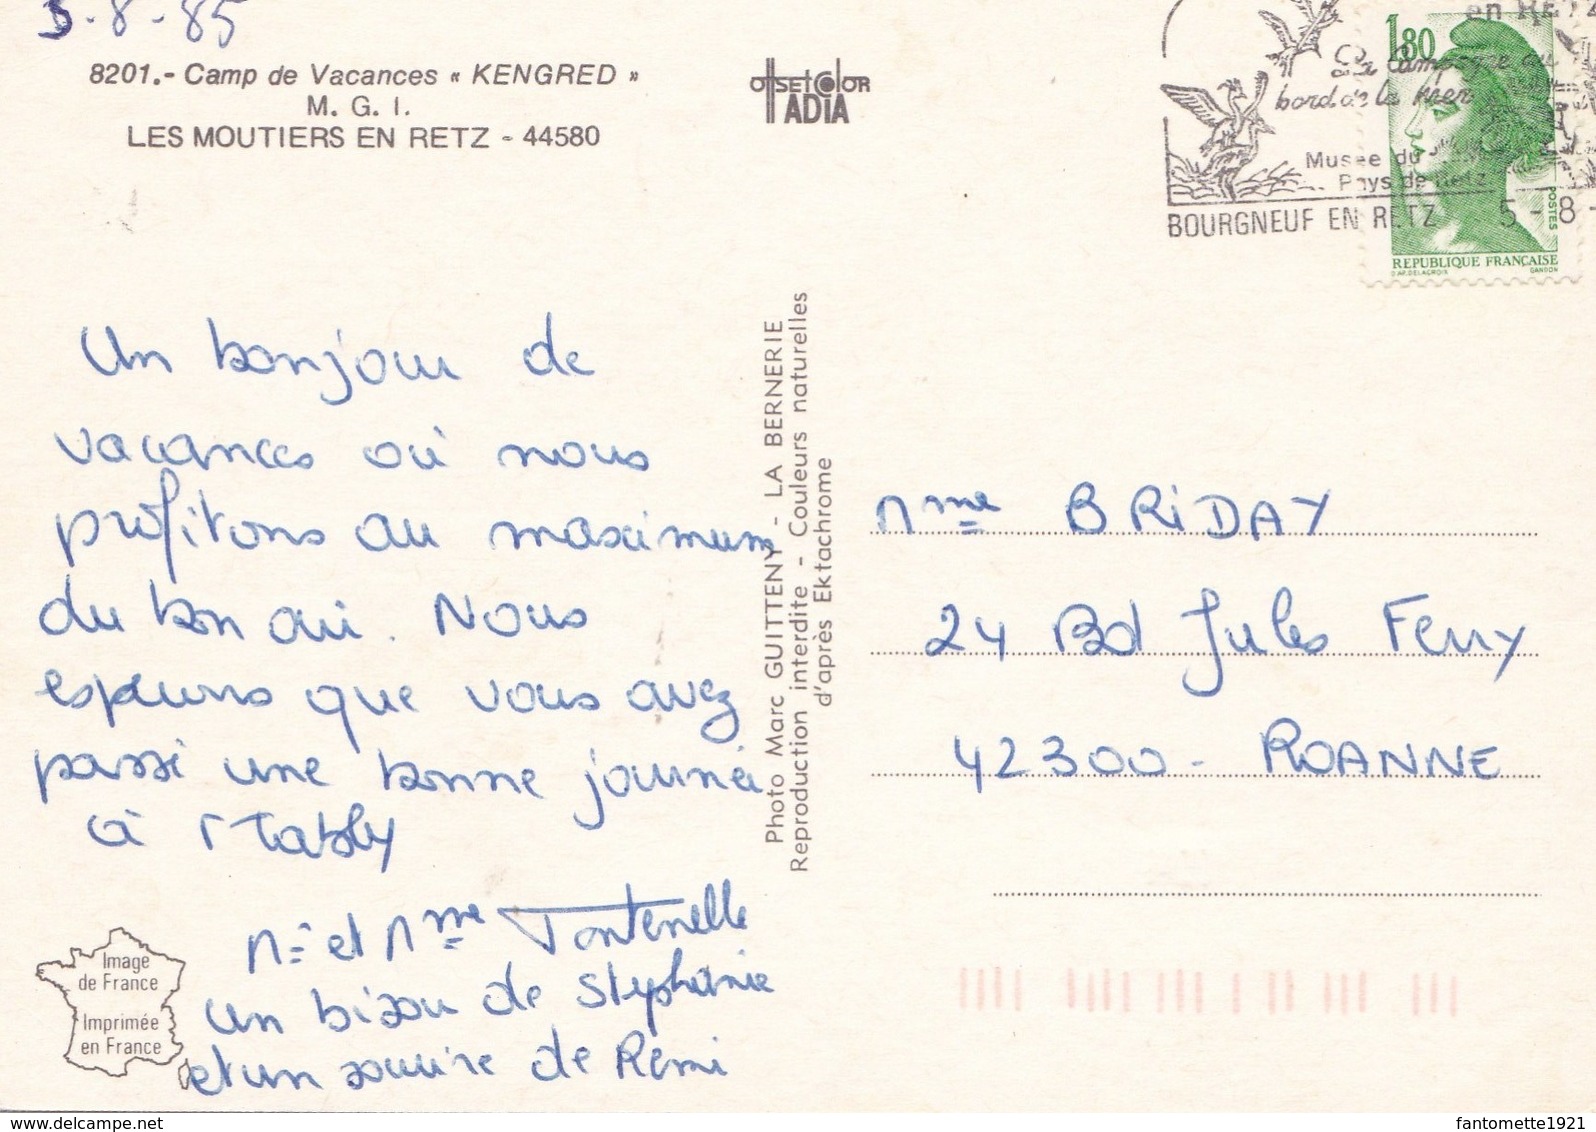 5-8-85
8201.- Camp de Vacances « KENGRED »
M. G. I.
LES MOUTIERS EN RETZ - 44580
OffSEt COlOR
ADIA
en RETZ
La Campagne au
bord de la Mer
Musee du
Pays de Retz
BOURGNEUF EN RETZ 5-8-
1,80
POSTES
REPUBLIQUE FRANÇAISE
D'AP. DELACROIX GANDON
Un bonjour de
vacances où nous
profitons au maximum
du bon air. Nous
espérons que vous avez
passé une bonne journée
à Mably
Mr et Mme Fontenelle
un bisou de Stéphanie
et un sourire de Rémi
Photo Marc GUITTENY - LA BERNERIE
Reproduction interdite - Couleurs naturelles
d'après Ektachrome
Mme BRIDAY
24 Bd Jules Ferry
42300 - ROANNE
Image
de France
Imprimée
en France
www.delcampe.net
fantomette1921